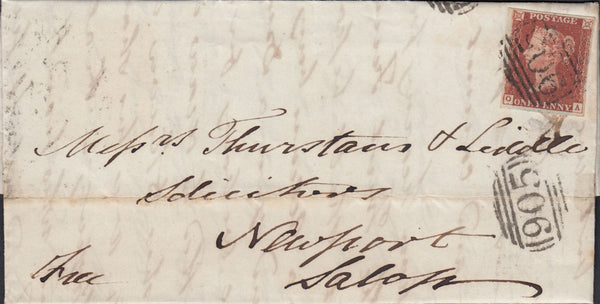 POSTAGE
ONE PENNY
Messrs Thurstans & Liddle
Solicitors
905
Newport
Free
Salop